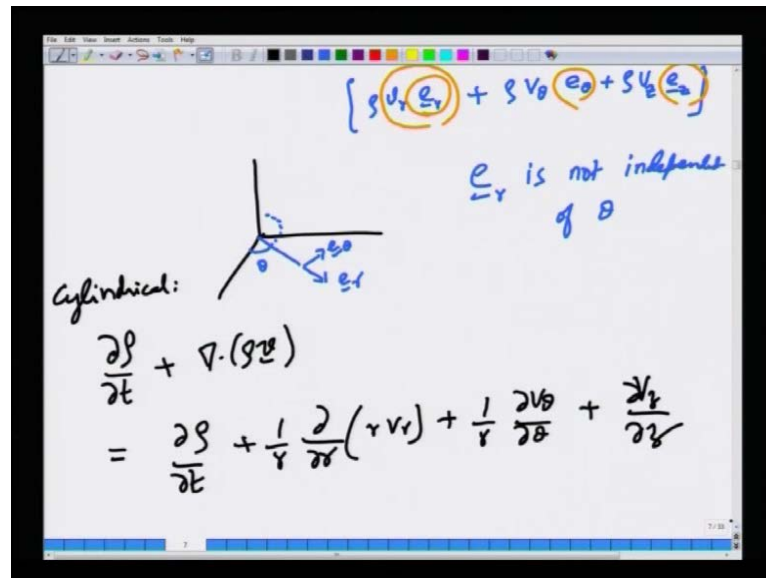 File Edit View Insert Actions Tools Help
[ρ v_r e_r + ρ v_θ e_θ + ρ v_z e_z]
e_r is not independent
of θ
θ
e_θ
e_r
Cylindrical:
∂ρ/∂t + ∇·(ρv)
= ∂ρ/∂t + 1/r ∂/∂r (r v_r) + 1/r ∂v_θ/∂θ + ∂v_z/∂z
7/55
7